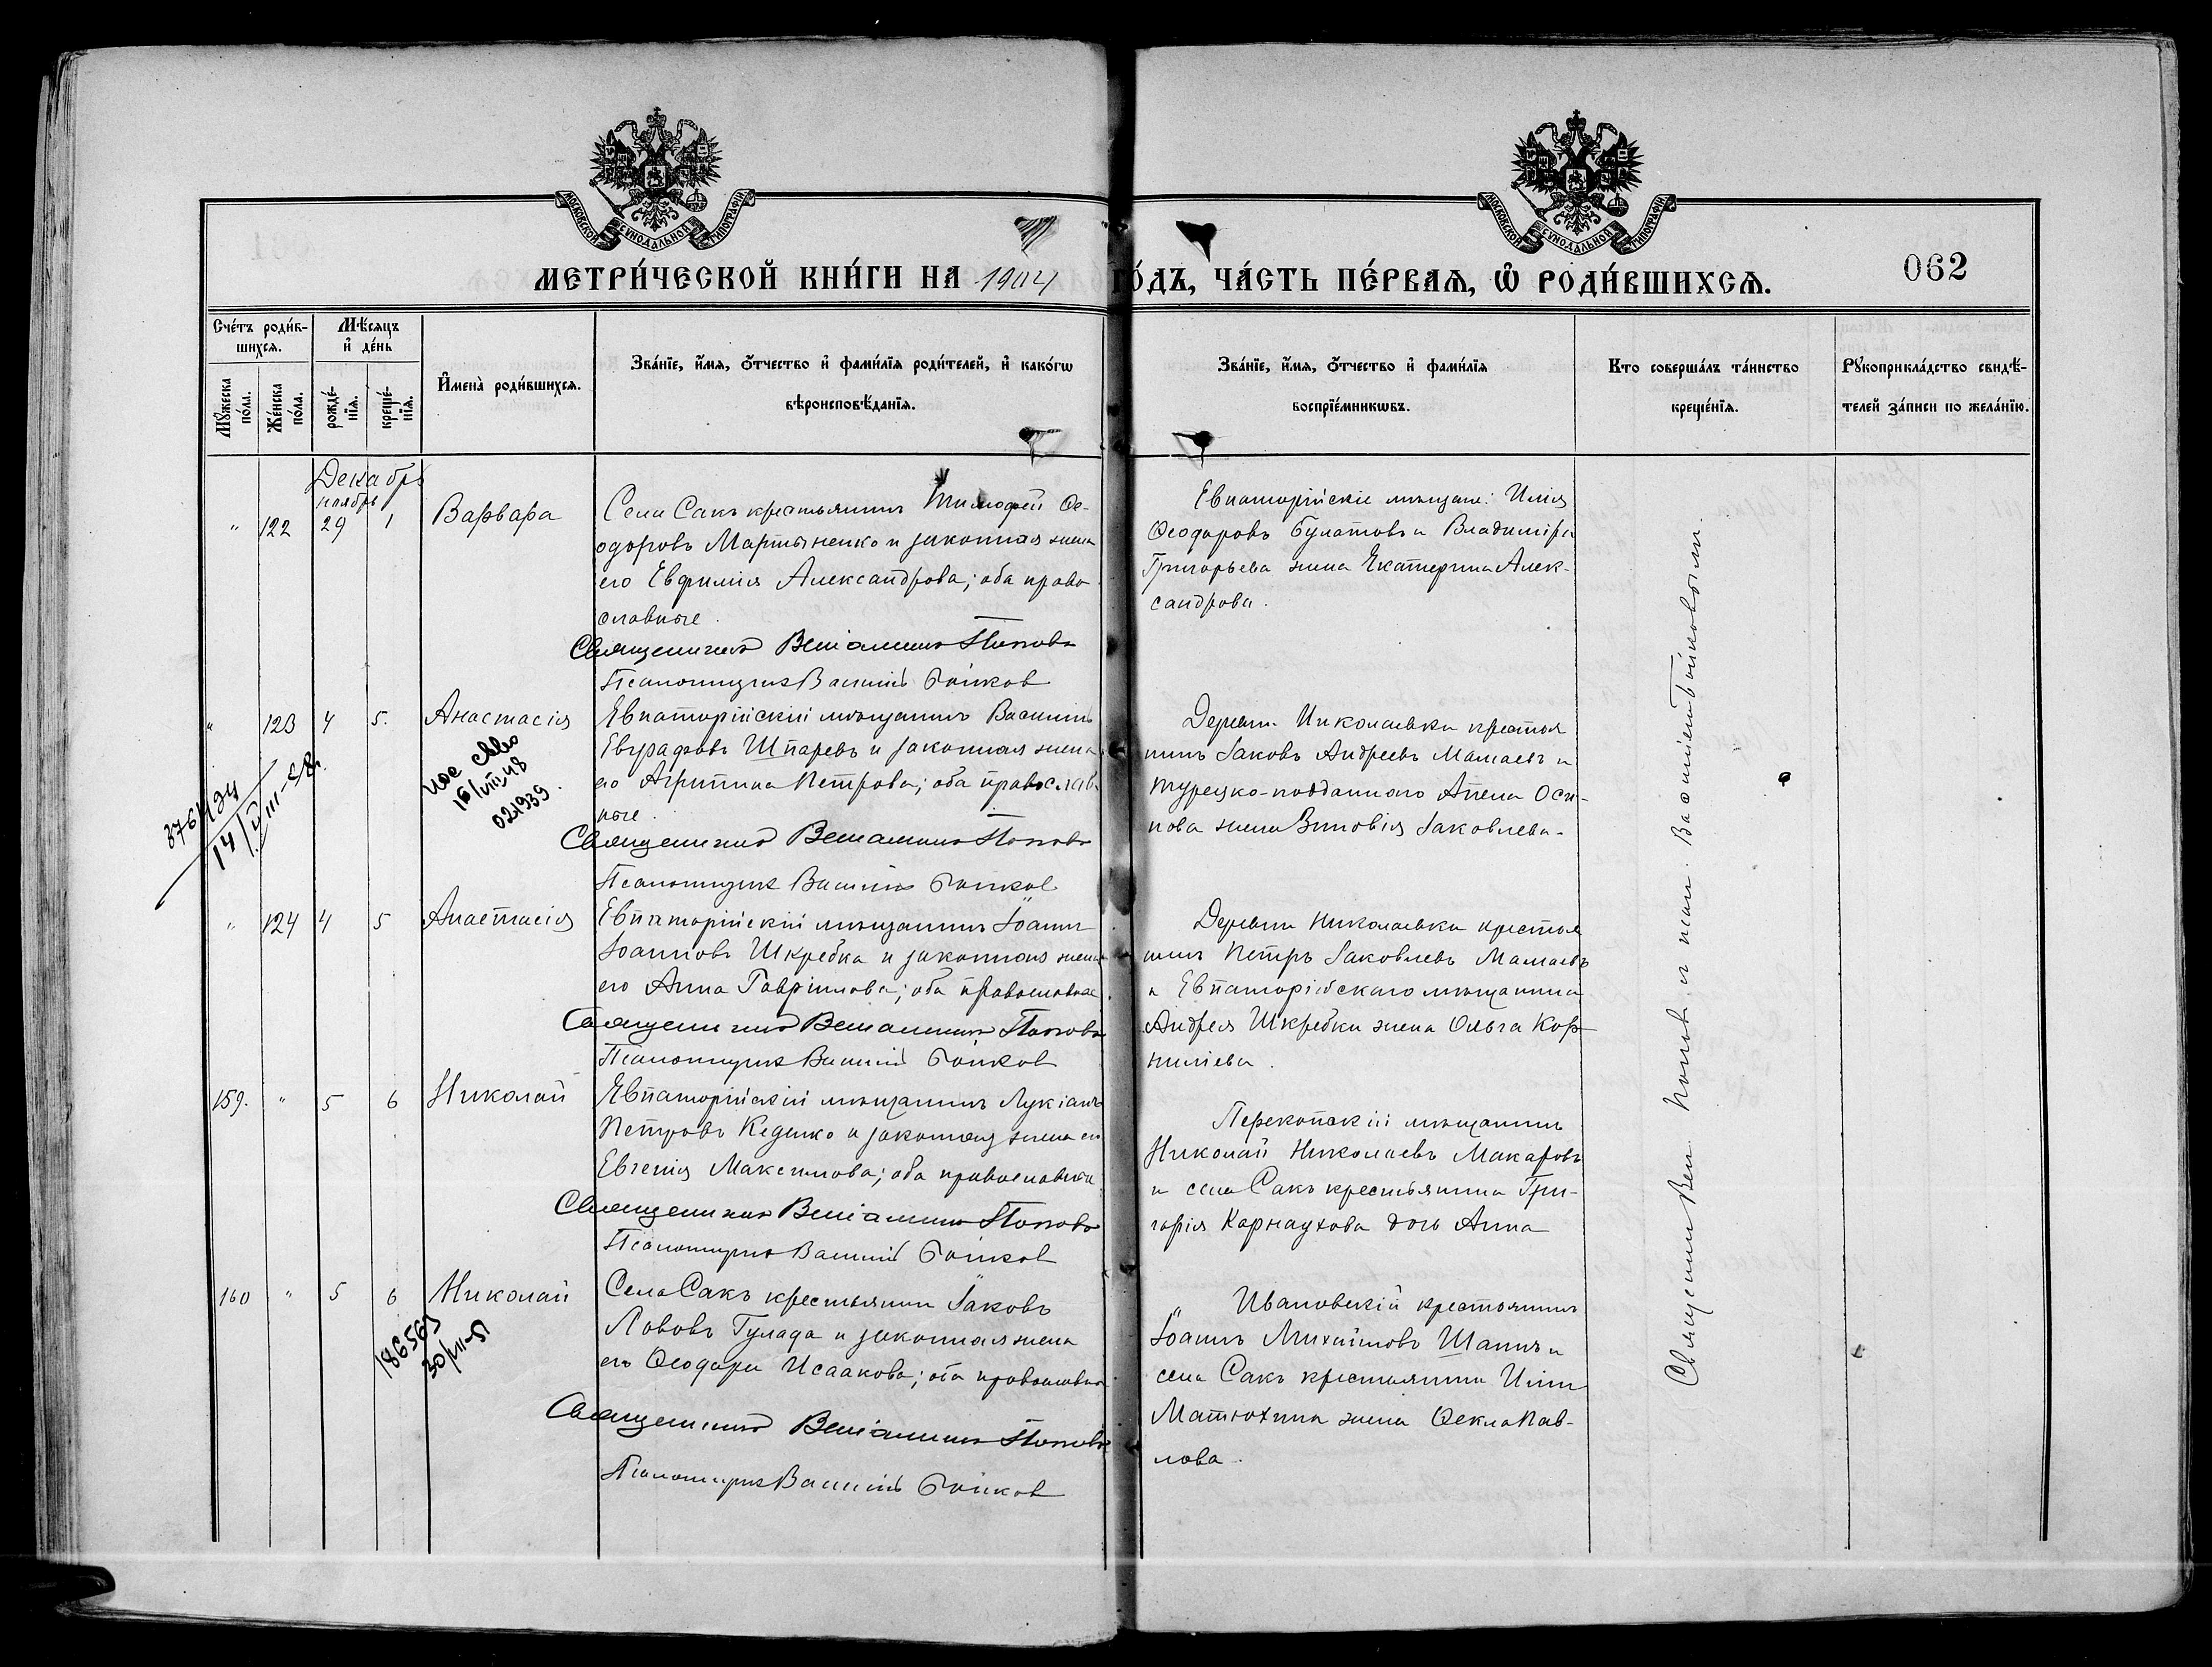 МОСКОВСКОЙ СѴНОДАЛЬНОЙ ТИПОГРАФІИ
МОСКОВСКОЙ СѴНОДАЛЬНОЙ ТИПОГРАФІИ
МЕТРИ́ЧЕСКОЙ КНИ́ГИ НА 1904 ГО́ДЪ, ЧА́СТЬ ПЕ́РВАѦ, Ѽ РОДИ́ВШИХСѦ.
062
Сче́тъ роди́в-
шихсѧ.
Мѣ́сѧцъ
и҆ де́нь
Мꙋ́жеска
по́ла.
Же́нска
по́ла.
рожде́-
нїѧ.
креще́-
нїѧ.
И҆мена̀ роди́вшихсѧ.
Зва́нїе, и҆́мѧ, ѻ҆́тчество и҆ фами́лїѧ роди́телей, и҆ како́гѡ
вѣроисповѣ́данїѧ.
Зва́нїе, и҆́мѧ, ѻ҆́тчество и҆ фами́лїѧ
воспрїе́мникѡвъ.
Кто соверша́лъ та́инство
креще́нїѧ.
Рꙋкоприкла́дство свидѣ́-
телей за́писи по жела́нїю.
Декабрь
ноябрь
" 122 29 1 Варвара
Села Сакъ крестьянинъ Тимофей Ѳе-
одоровъ Мартыненко и законная жена
его Евфимія Александрова; оба право
славные.
Священникъ Веніаминъ Поповъ
Псаломщикъ Василій Бойков
Евпаторійскіе мѣщане: Илія
Ѳеодоровъ Булатовъ и Владиміра
Григорьева жена Екатерина Алек-
сандрова.
" 123 4 5. Анастасія
Евпаторійскій мѣщанинъ Василій
Евграфовъ Шпаревъ и законная жена
его Агрипина Петрова; оба православ
ные.
Священникъ Веніаминъ Поповъ
Псаломщикъ Василій Бойков
Деревни Николаевки крестья
нинъ Іаковъ Андреевъ Мамаевъ и
турецко-подданного Оси-
пова жена Зиновія Іаковлева.
16/VIII 48
021939
14/VIII-28
" 124 4 5 Анастасія
Евпаторійскій мѣщанинъ Іоаннъ
Іоанновъ Шкребка и законная жена
его Анна Гавріилова; оба православные
Священникъ Веніаминъ Поповъ
Псаломщикъ Василій Бойков
Деревни Николаевки крестья
нинъ Петръ Іаковлевъ Мамаевъ
и Евпаторійскаго мѣщанина
Андрея Шкребки жена Ольга Кор-
нилiева.
159. " 5 6 Николай
Евпаторійскій мѣщанинъ Лукіанъ
Петровъ и законная жена его
Евгенія Максимова; оба православные
Священникъ Веніаминъ Поповъ
Псаломщикъ Василій Бойков
Перекопскій мѣщанинъ
Николай Николаевъ Макаровъ
и села Сакъ крестьянина Гри-
горія Карнаухова дочь Анна
160 " 5 6 Николай
Села Сакъ крестьянин Іаковъ
Гулада и законная жена
его Ѳеодора Исаакова; оба православные
Священникъ Веніаминъ Поповъ
Псаломщикъ Василій Бойков
Ивановскій крестьянинъ
Іоаннъ Михайловъ и
села Сакъ крестьянина Иліи
Матюхина жена Ѳекла Пав-
лова.
186563
30/VII-51
Священник Вен. Поповъ и псал. Василіем Бойковыми.